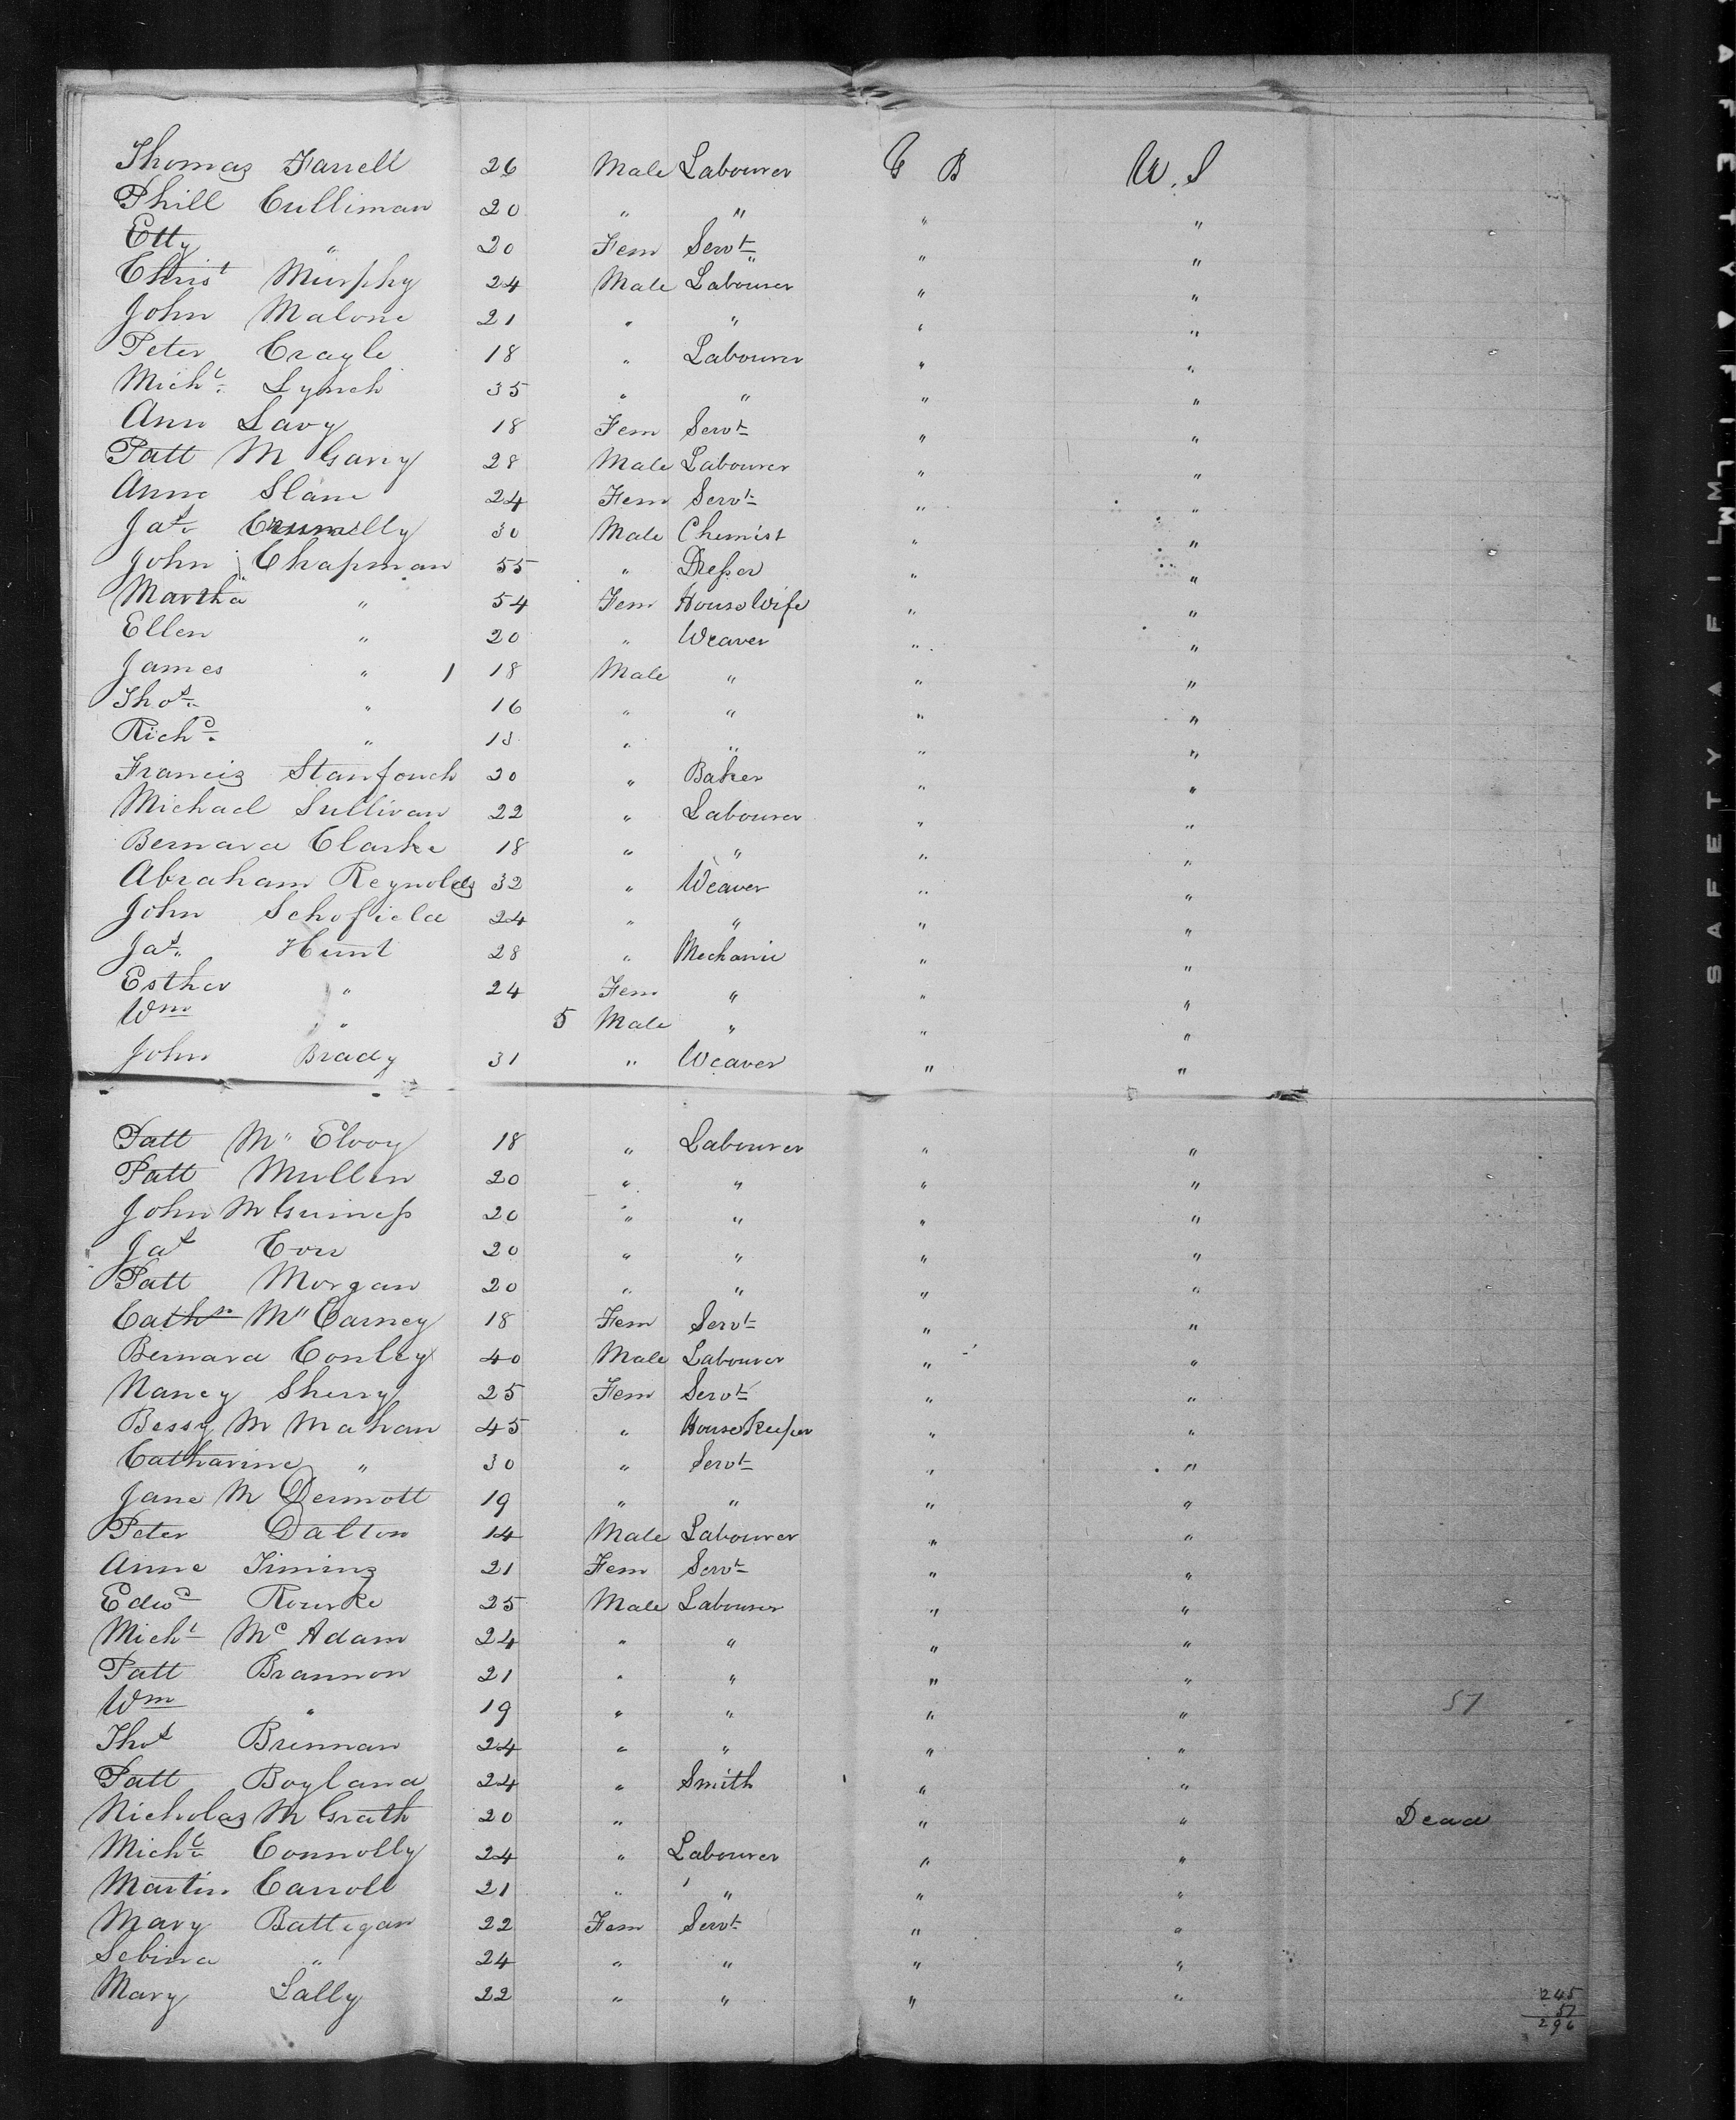 Thomas Farrell 26 Male Labourer G B U. S
Phill Culliman 20 " " " "
Etty " 20 Fem Servt " " "
Christ Murphy 24 Male Labourer " "
John Malone 21 " " " "
Peter Crayle 18 " Labourer " "
Michl. Lynch 35 " " " "
Ann Lavy 18 Fem Servt " "
Patt M Garry 28 Male Labourer " "
Anne Slane 24 Fem Servt " "
Jas. 30 Male Chemist " "
John Chapman 55 " Dresser " "
Martha " 54 Fem House Wife " "
Ellen " 20 " Weaver " "
James " 1 18 Male " " "
Thos. " 16 " " " "
Richd. " 13 " " " "
Francis 20 " Baker " "
Michael Sullivan 22 " Labourer " "
Bernard Clarke 18 " " " "
Abraham Reynolds 32 " Weaver " "
John Schofield 24 " " " "
Jas. Hunt 28 " Mechanic " "
Esther " 24 Fem " " "
Wm " 5 Male " " "
John Brady 31 " Weaver " "
Patt Mc Elroy 18 " Labourer " "
Patt Mullen 20 " " " "
John M Guiness 20 " " " "
Jas 20 " " " "
Patt Morgan 20 " " " "
Cathn Mc Carney 18 Fem Servt " "
Bernard Conley 40 Male Labourer " "
Nancy Sherry 25 Fem Servt " "
Bessy M Mahan 45 " House Keeper " "
Catharine " 30 " Servt " "
Jane M Dermott 19 " " " "
Peter Dalton 14 Male Labourer " "
Anne Timins 21 Fem Servt " "
Edwd Rourke 25 Male Labourer " "
Michl Mc Adam 24 " " " "
Patt Brannon 21 " " " "
Wm " 19 " " " " 51
Thos Brennan 24 " " " "
Patt Boyland 24 " Smith " "
Nicholas M Grath 20 " " " Dead
Michl. Connolly 24 " Labourer " "
Martin Carroll 21 " " " "
Mary Battegan 22 Fem Servt " "
Sebina " 24 " " " "
Mary Lally 22 " " " "
245
51
296
SAFETY▲FILM